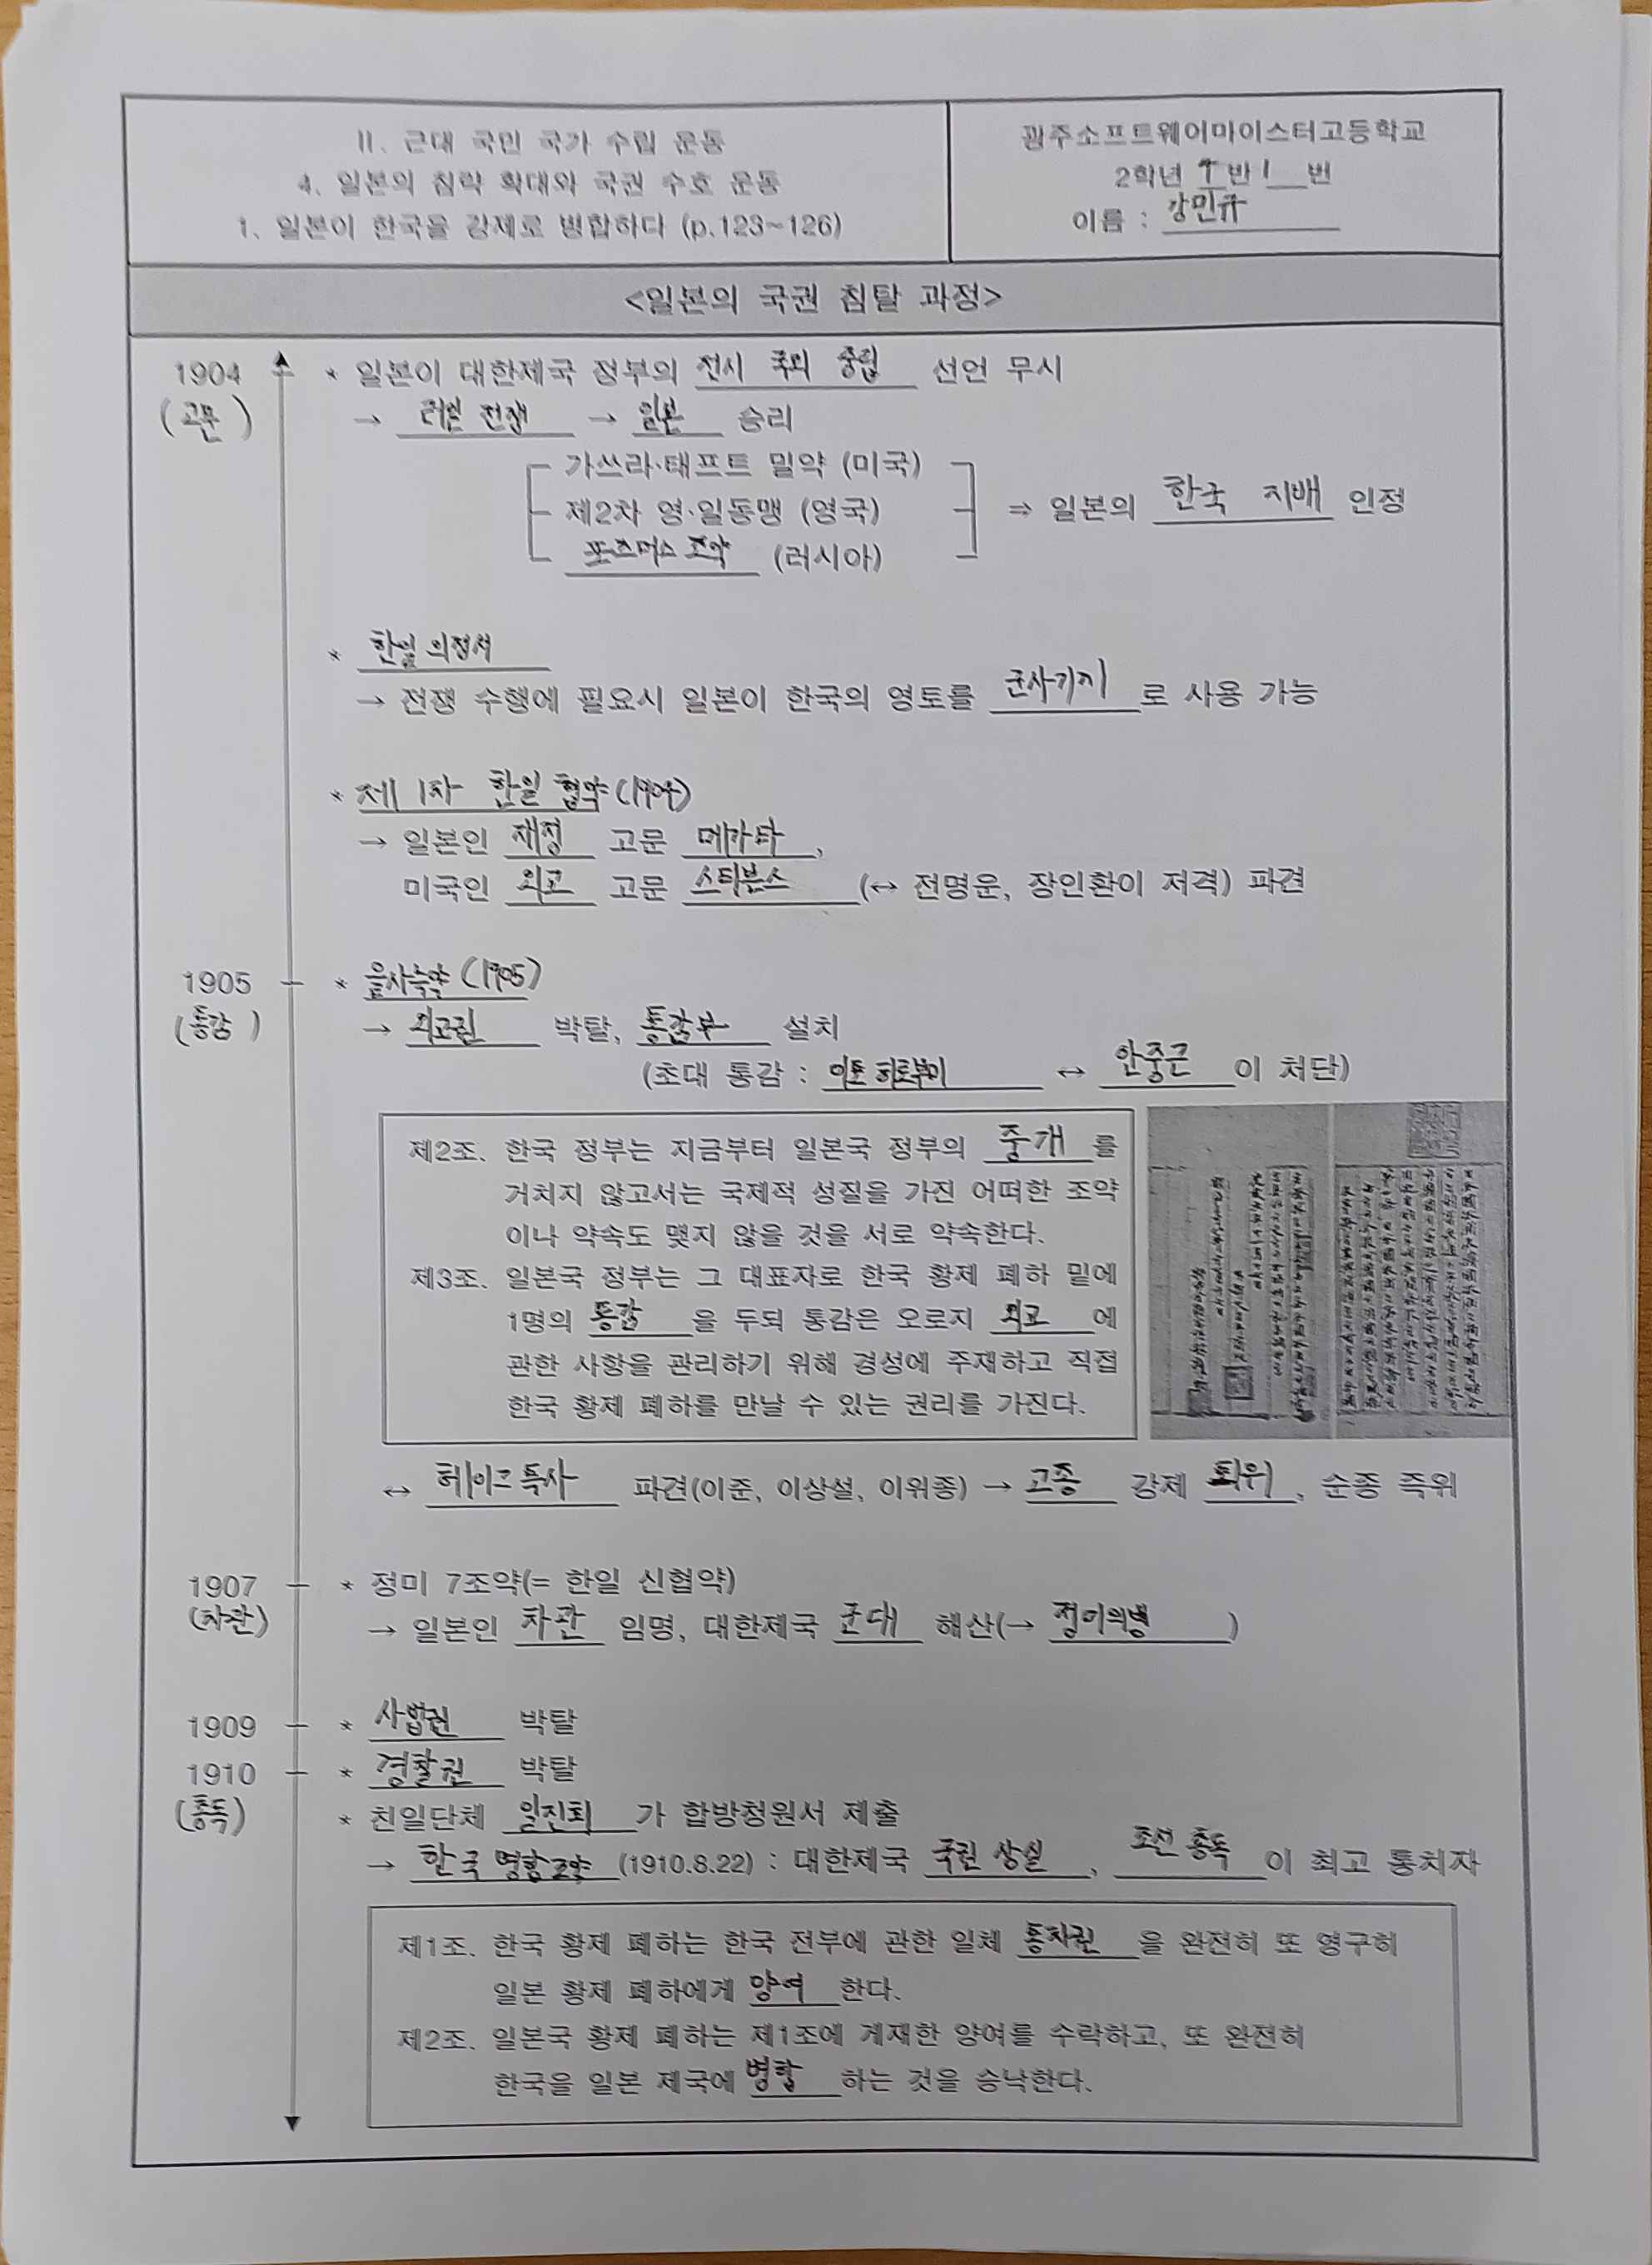 Ⅱ. 근대 국민 국가 수립 운동
4. 일본의 침략 확대와 국권 수호 운동
1. 일본이 한국을 강제로 병합하다 (p.123~126)
광주소프트웨어마이스터고등학교
2학년 4반 1번
이름 : 강민규
<일본의 국권 침탈 과정>
1904 * 일본이 대한제국 정부의 전시 국외 중립 선언 무시
(고문) → 러일 전쟁 → 일본 승리
가쓰라·태프트 밀약 (미국)
제2차 영·일동맹 (영국) ⇒ 일본의 한국 지배 인정
포츠머스 조약 (러시아)
* 한일 의정서
→ 전쟁 수행에 필요시 일본이 한국의 영토를 군사기지로 사용 가능
* 제1차 한일 협약(1904)
→ 일본인 재정 고문 메가타,
미국인 외교 고문 스티븐스(↔ 전명운, 장인환이 저격) 파견
1905 * 을사늑약(1905)
(통감) → 외교권 박탈, 통감부 설치
(초대 통감 : 이토 히로부미 ↔ 안중근이 처단)
제2조. 한국 정부는 지금부터 일본국 정부의 중개를
거치지 않고서는 국제적 성질을 가진 어떠한 조약
이나 약속도 맺지 않을 것을 서로 약속한다.
제3조. 일본국 정부는 그 대표자로 한국 황제 폐하 밑에
1명의 통감을 두되 통감은 오로지 외교에
관한 사항을 관리하기 위해 경성에 주재하고 직접
한국 황제 폐하를 만날 수 있는 권리를 가진다.
↔ 헤이그 특사 파견(이준, 이상설, 이위종) → 고종 강제 퇴위, 순종 즉위
1907 * 정미 7조약(= 한일 신협약)
(차관) → 일본인 차관 임명, 대한제국 군대 해산(→ 정미의병)
1909 * 사법권 박탈
1910 * 경찰권 박탈
(총독) * 친일단체 일진회가 합방청원서 제출
→ 한국 병합 조약 (1910.8.22) : 대한제국 국권 상실, 조선 총독이 최고 통치자
제1조. 한국 황제 폐하는 한국 전부에 관한 일체 통치권을 완전히 또 영구히
일본 황제 폐하에게 양여 한다.
제2조. 일본국 황제 폐하는 제1조에 게재한 양여를 수락하고, 또 완전히
한국을 일본 제국에 병합하는 것을 승낙한다.